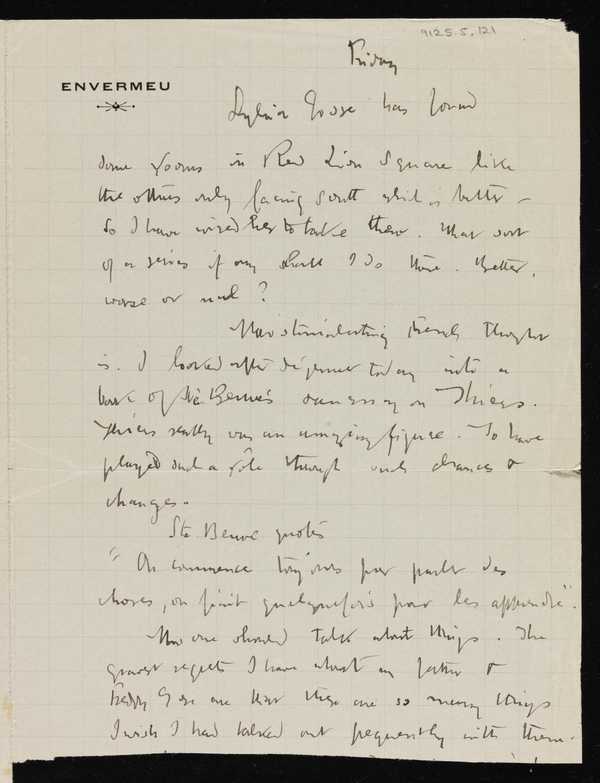 9125.5.121
Friday
ENVERMEU
Sylvia Gosse has found
some rooms in Red Lion Square like
the others only facing South which is better –
So I have wired her to take them. What sort
of a series if any shall I do there. Better,
worse or nul?
How stimulating French thought
is. I looked after déjeuner today into a
book of Ste Beuve's an essay on Thiers.
Thiers really was an amazing figure. To have
played such a rôle through such chances &
changes.
Ste. Beuve quotes
"On commence toujours par parler des
choses, on finit quelquefois par les apprendre".
How one should talk about things. The
gravest regrets I have about my father &
Freddy Gore are that there are so many things
I wish I had talked out frequently with them.